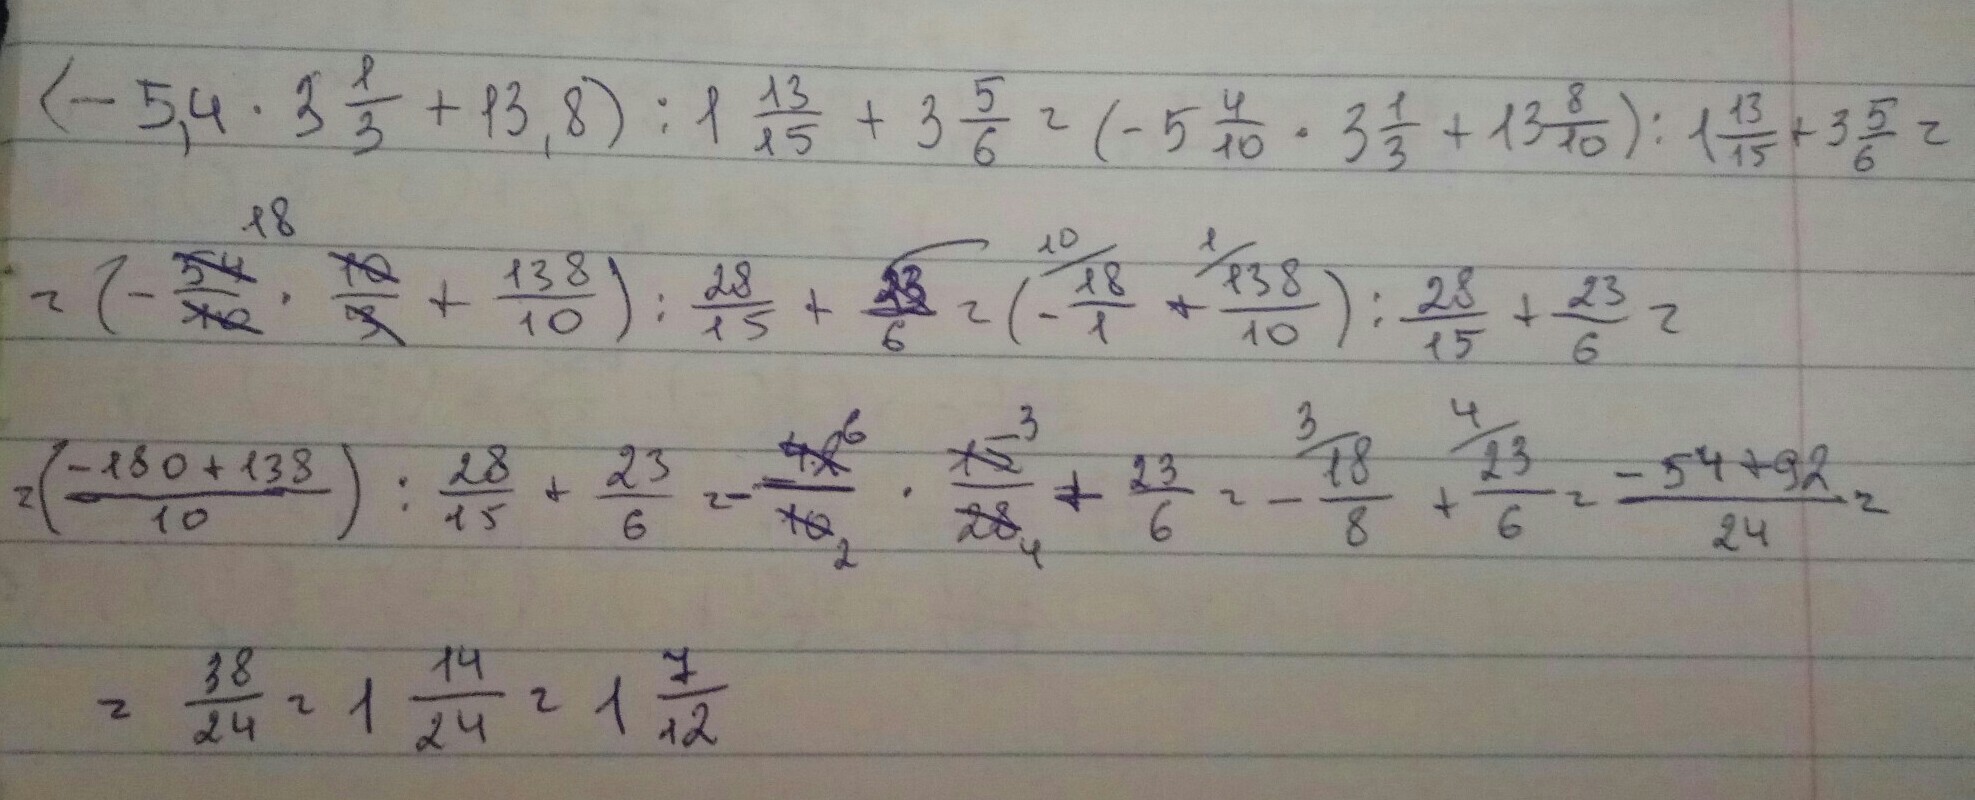 (- 5,4 · 3 1/3 + 13,8) : 1 13/15 + 3 5/6 = (- 5 4/10 · 3 1/3 + 13 8/10) : 1 13/15 + 3 5/6 =
18
= (- 54/10 · 10/3 + 138/10) : 28/15 + 23/6 = (- 10/ 18/1 + 1/ 138/10) : 28/15 + 23/6 =
= (-180+138/10) : 28/15 + 23/6 = - 42 6/10 2 · 15 3/28 4 + 23/6 = - 3/ 18/8 + 4/ 23/6 = -54+92/24 =
= 38/24 = 1 14/24 = 1 7/12